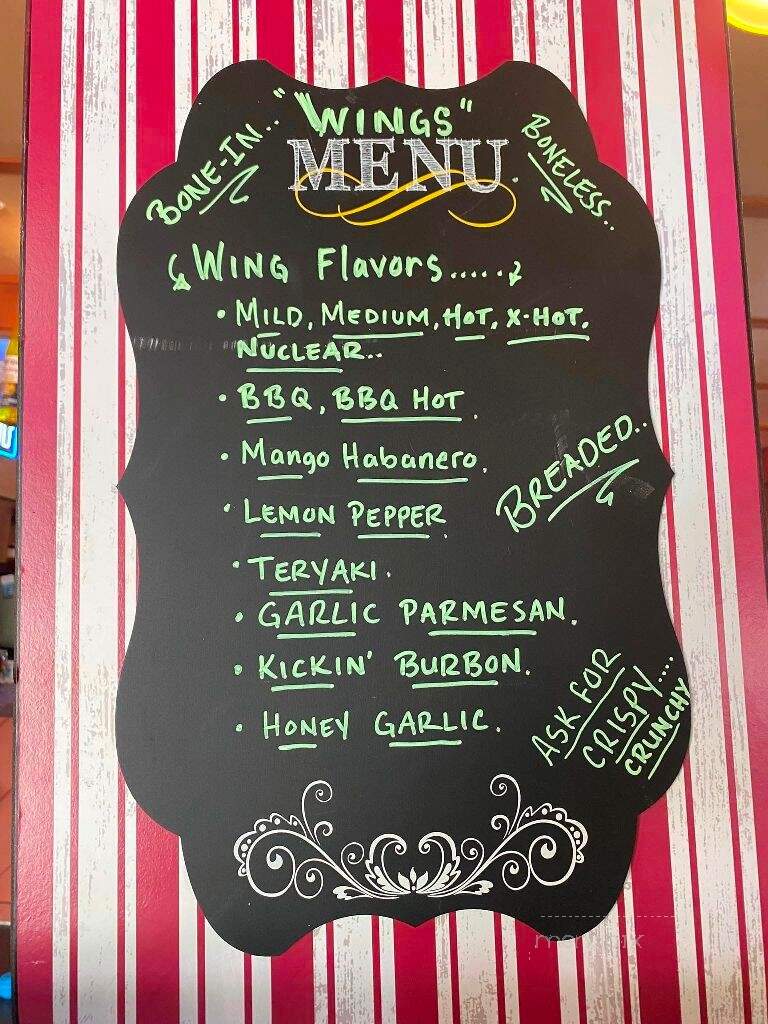 "WINGS"
MENU
BONE-IN...
BONELESS..
WING Flavors.....
• MILD, MEDIUM, HOT, X-HOT,
NUCLEAR..
• BBQ, BBQ HOT.
• Mango Habanero.
• LEMON PEPPER
BREADED..
• TERYAKI.
• GARLIC PARMESAN.
• KICKIN' BURBON.
• HONEY GARLIC.
ASK FOR
CRISPY....
CRUNCHY